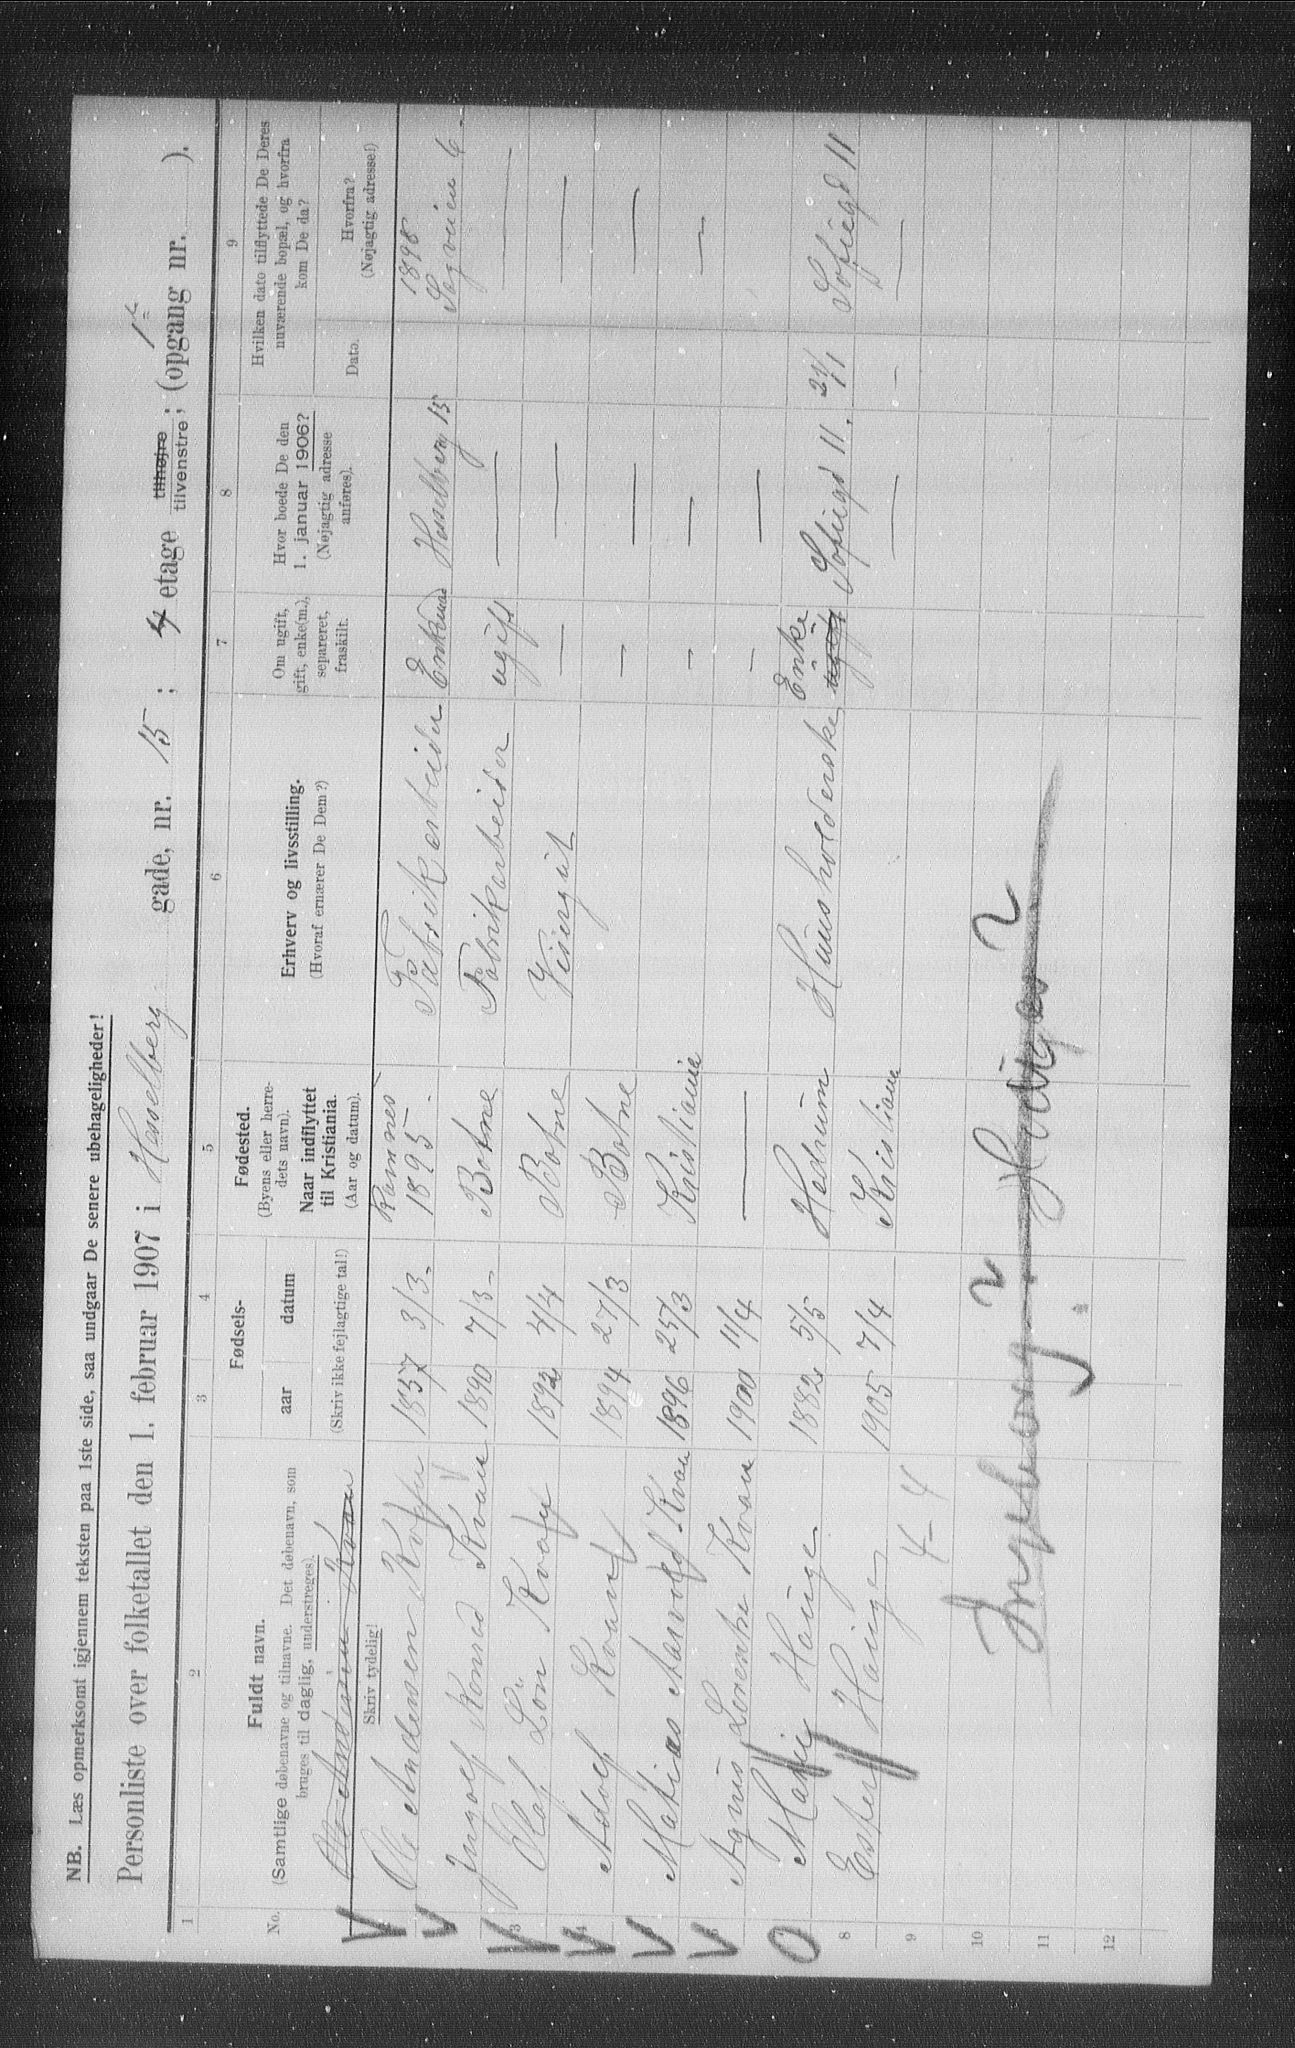 NB. Læs opmerksomt igjennem teksten paa 1ste side, saa undgaar De senere ubehageligheder!
Personliste over folketallet den 1. februar 1907 i Hesselberg gade, nr. 15 ; 4 etage tilhøjre tilvenstre ; (opgang nr. ).
1 2 3 4 5 6 7 8 9
No. Fuldt navn.
(Samtlige døbenavne og tilnavne. Det døbenavn, som
bruges til daglig, understreges).
Skriv tydelig!
Fødsels-
aar datum
(Skriv ikke fejlagtige tal!)
Fødested.
(Byens eller herre-
dets navn).
Naar indflyttet
til Kristiania.
(Aar og datum).
Erhverv og livsstilling.
(Hvoraf ernærer De Dem?)
Om ugift,
gift, enke(m.),
separeret,
fraskilt.
Hvor boede De den
1. januar 1906?
(Nøjagtig adresse
anføres).
Hvilken dato tilflyttede De Deres
nuværende bopæl, og hvorfra
kom De da?
Dato. Hvorfra?
(Nøjagtig adresse!)
Ole Andersen Kvan
Ole Andersen 1857 3/3 Ramnes 1895. Fabrikarbeider Enkemand Hesselberg 15 1898 Sagveien 6.
Ingolf Konrad Kvan 1890 7/3 Botne Fabrikarbeider ugift — —
3 Olaf 1892 4/4 Botne Visergut — — —
4 Adolf Kvan 1894 27/3 Botne — — —
Matias Aarvold Kvan 1896 25/3 Kristiania — — —
Agnus Lorentse Kvan 1900 11/4 — — —
Marie Hauge 1882 5/5 Høsholderske Enke ugift Sofiegd 11. 21/1 Sofiegd 11
8 Ester Hauge 1905 7/4 Kristiania — — —
9 4 – 4
10
11
12